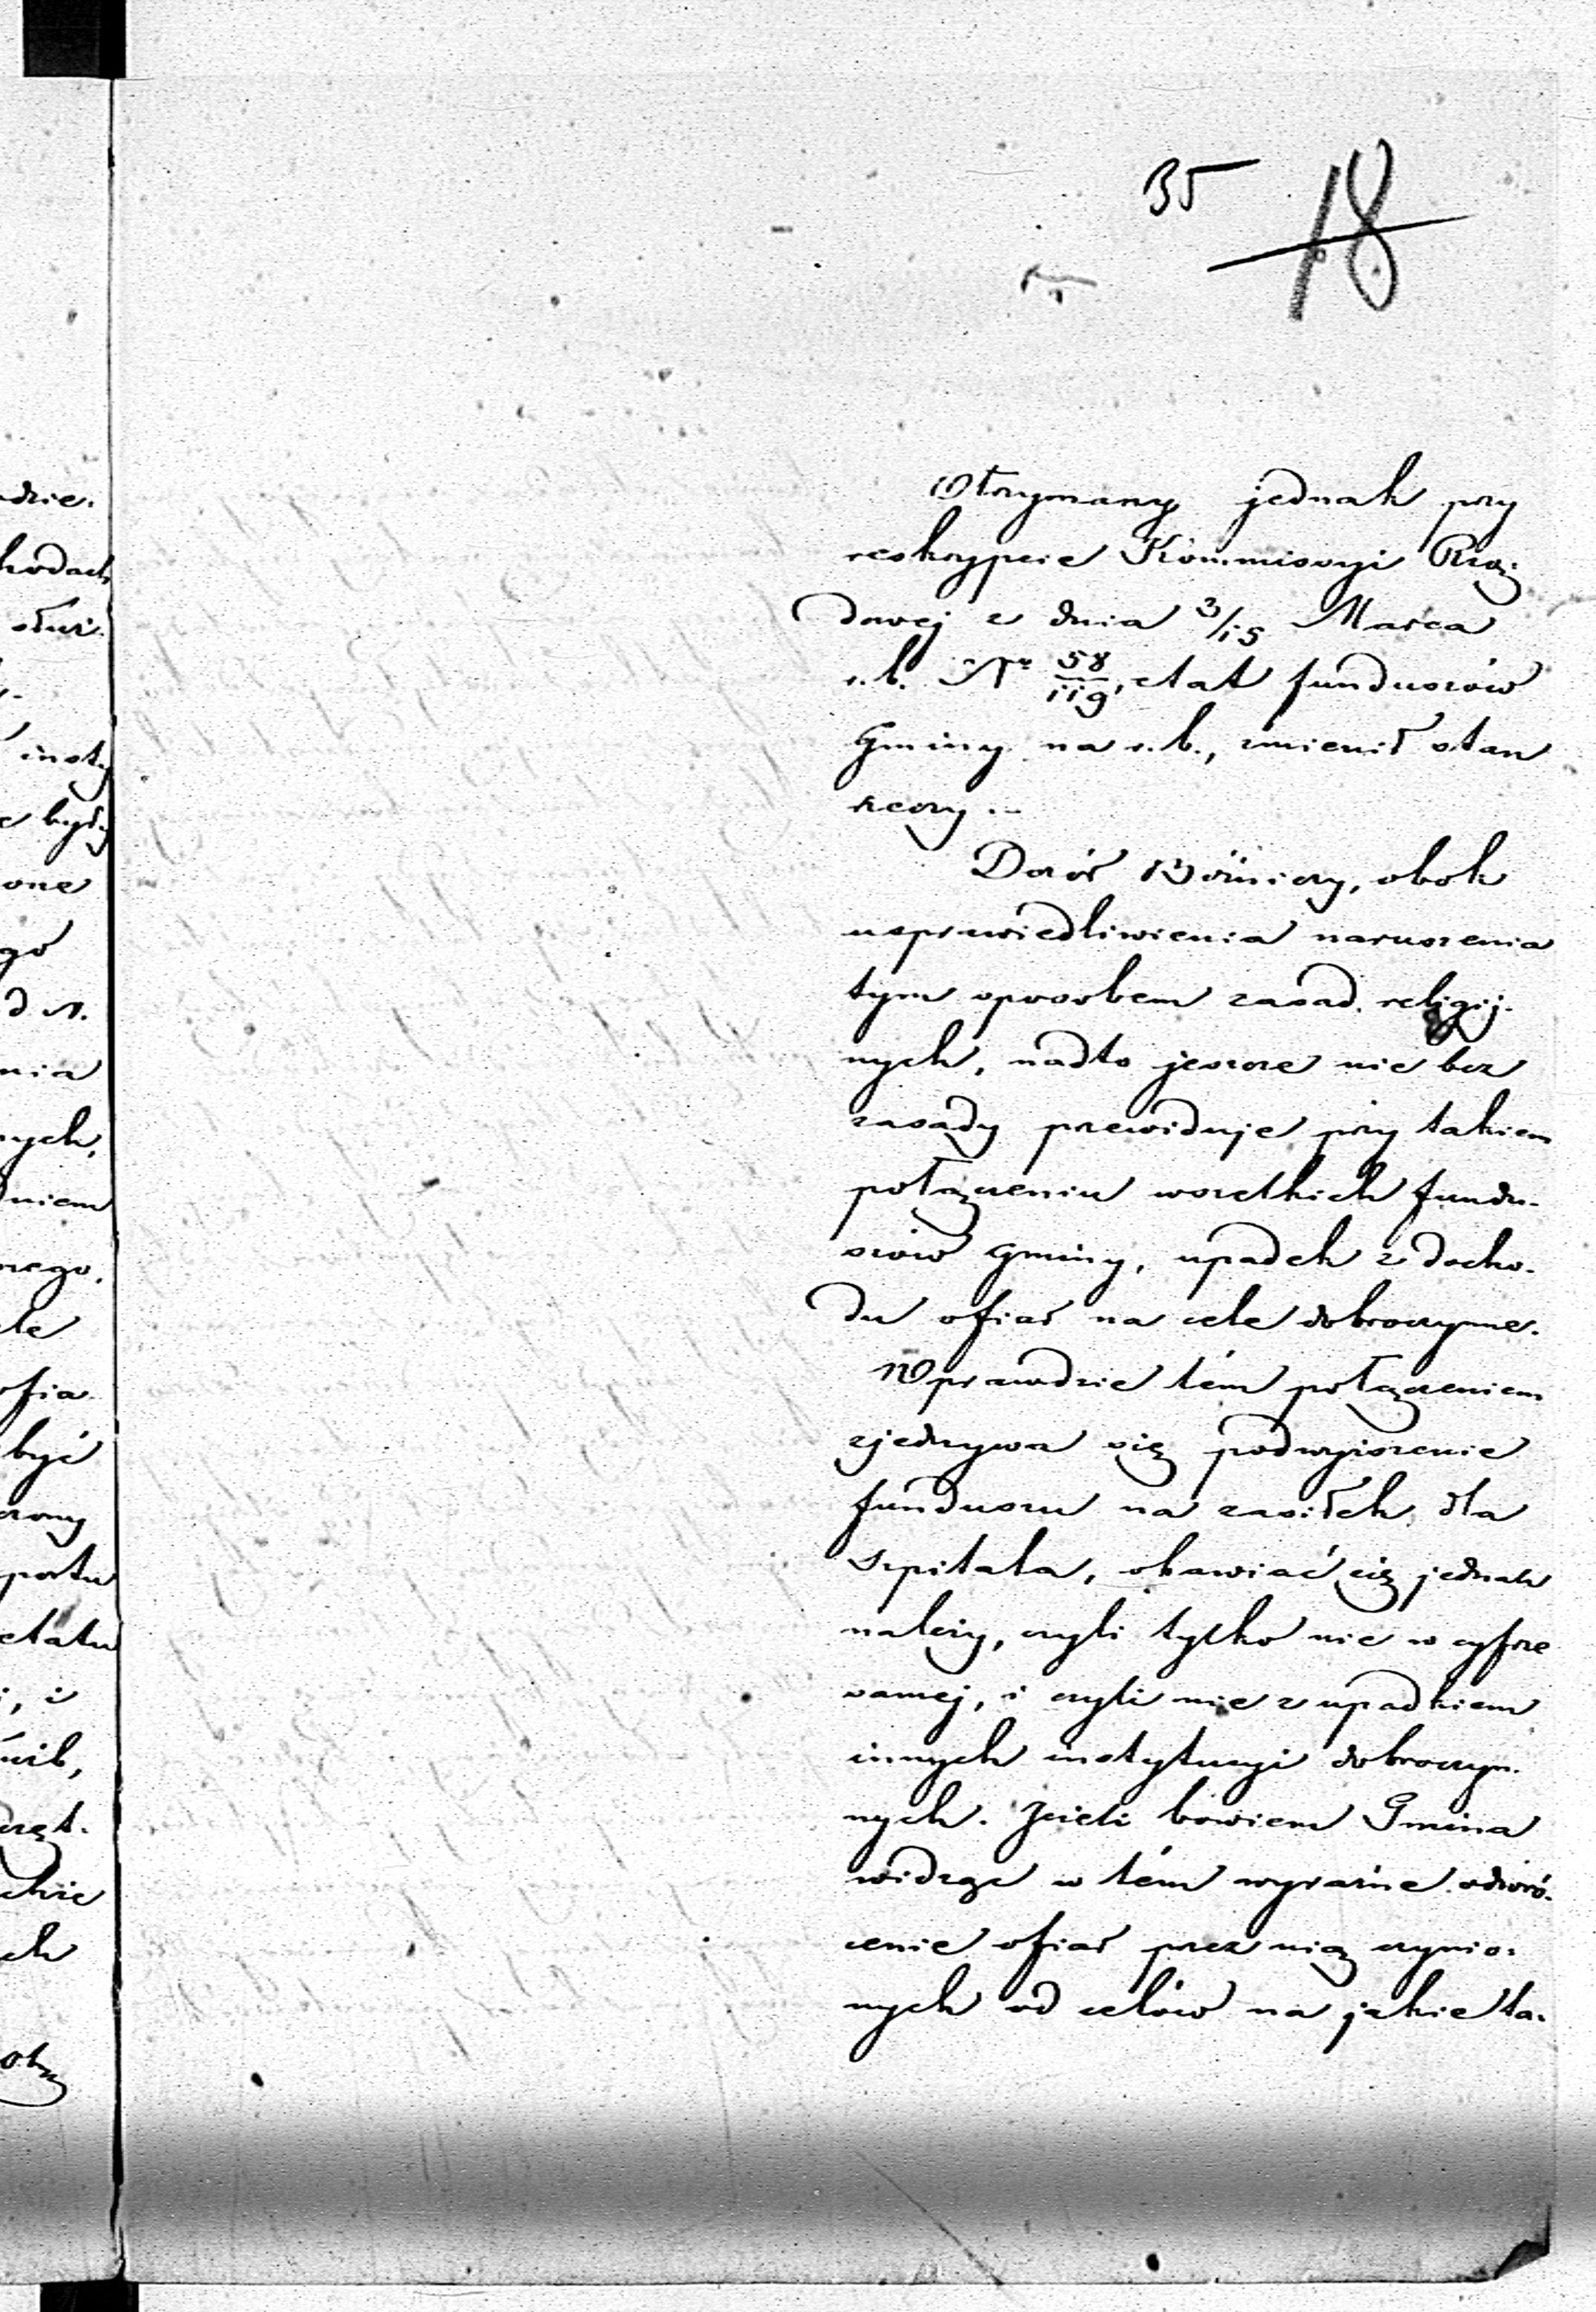 35 18
dzie.
hodach
insty
być
portu
etatu
Otrzymany jednak przy
reskrypcie Kommissyi Rzą-
dowej z dnia 3/15 Marca
r. b. Nr 58/119, etat funduszów
Gminy na r. b., zmienił stan
rzeczy. –
Dozór Bóżniczy, obok
usprawiedliwienia naruszenia
tym sposobem zasad religij-
nych, nadto jeszcze nie bez
zasady przewiduje przy takiem
połączeniu wszelkich fundu-
szów Gminy, upadek z docho-
du ofiar na cele dobroczynne.
Wprawdzie tém połączeniem
zjednywa się podwyższenie
funduszu na zasiłek dla
Szpitala, obawiać się jednak
należy, czyli tylko nie w cyfrze
samej, i czyli nie z upadkiem
innych instytucyi dobroczyn-
nych. Jeżeli bowiem Gmina
widząc w tém wyraźne odwró-
cenie ofiar przez nią czynio-
nych od celów na jakie ta-